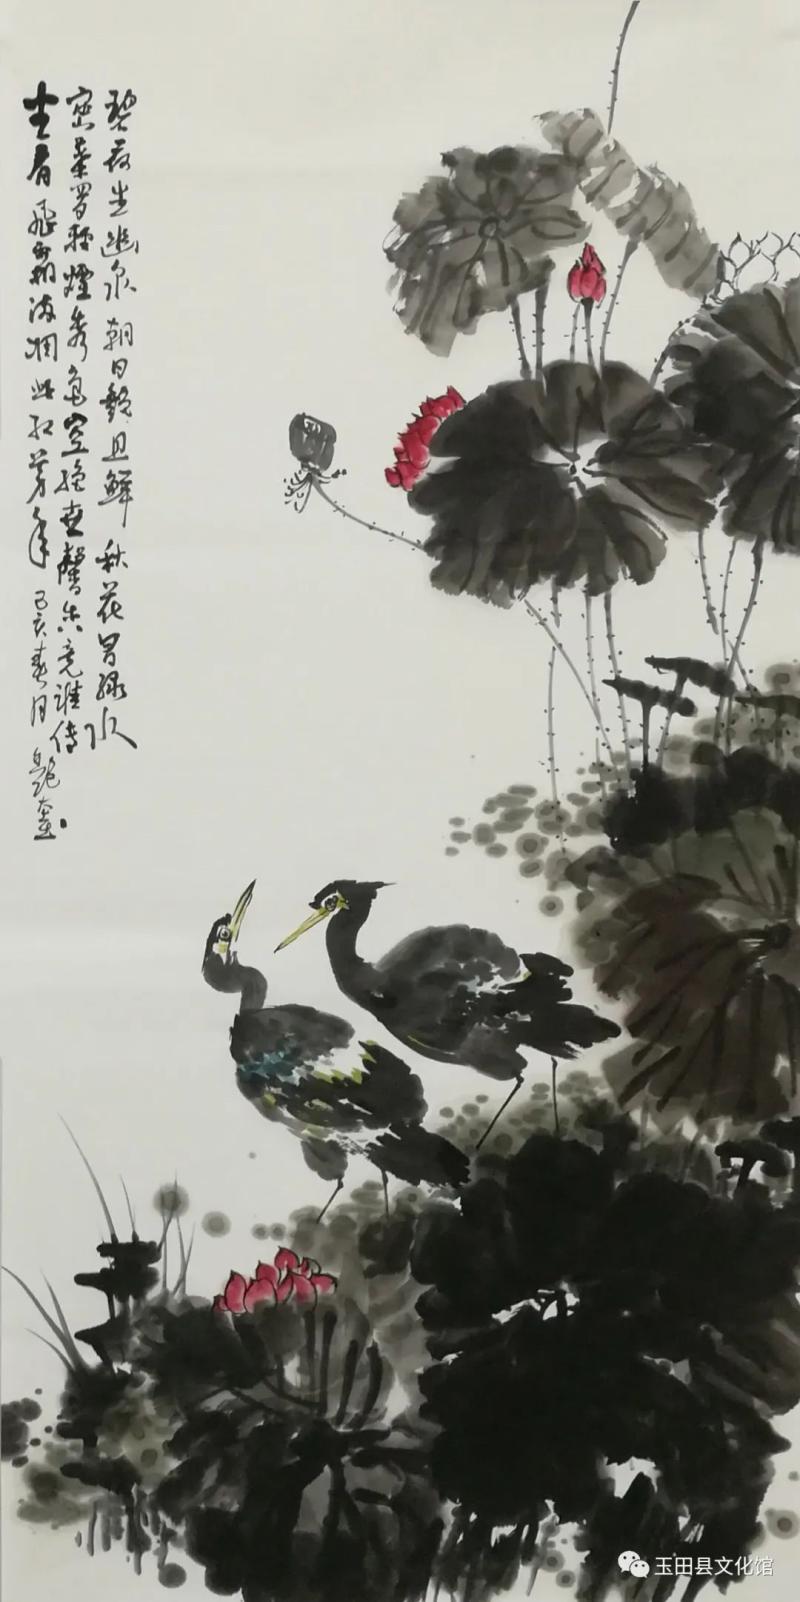 碧荷生幽泉朝日艷且鮮秋花冒绿水
密葉罗轻煙秀色空绝世馨香竟谁传
坐看飛霜满凋此红芳年 己亥春月
玉田县文化馆